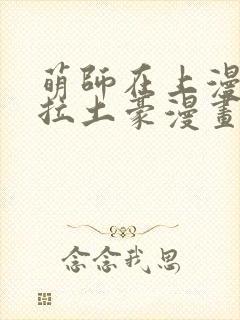 萌師在上漫
拉土豪漫畫
念念我思